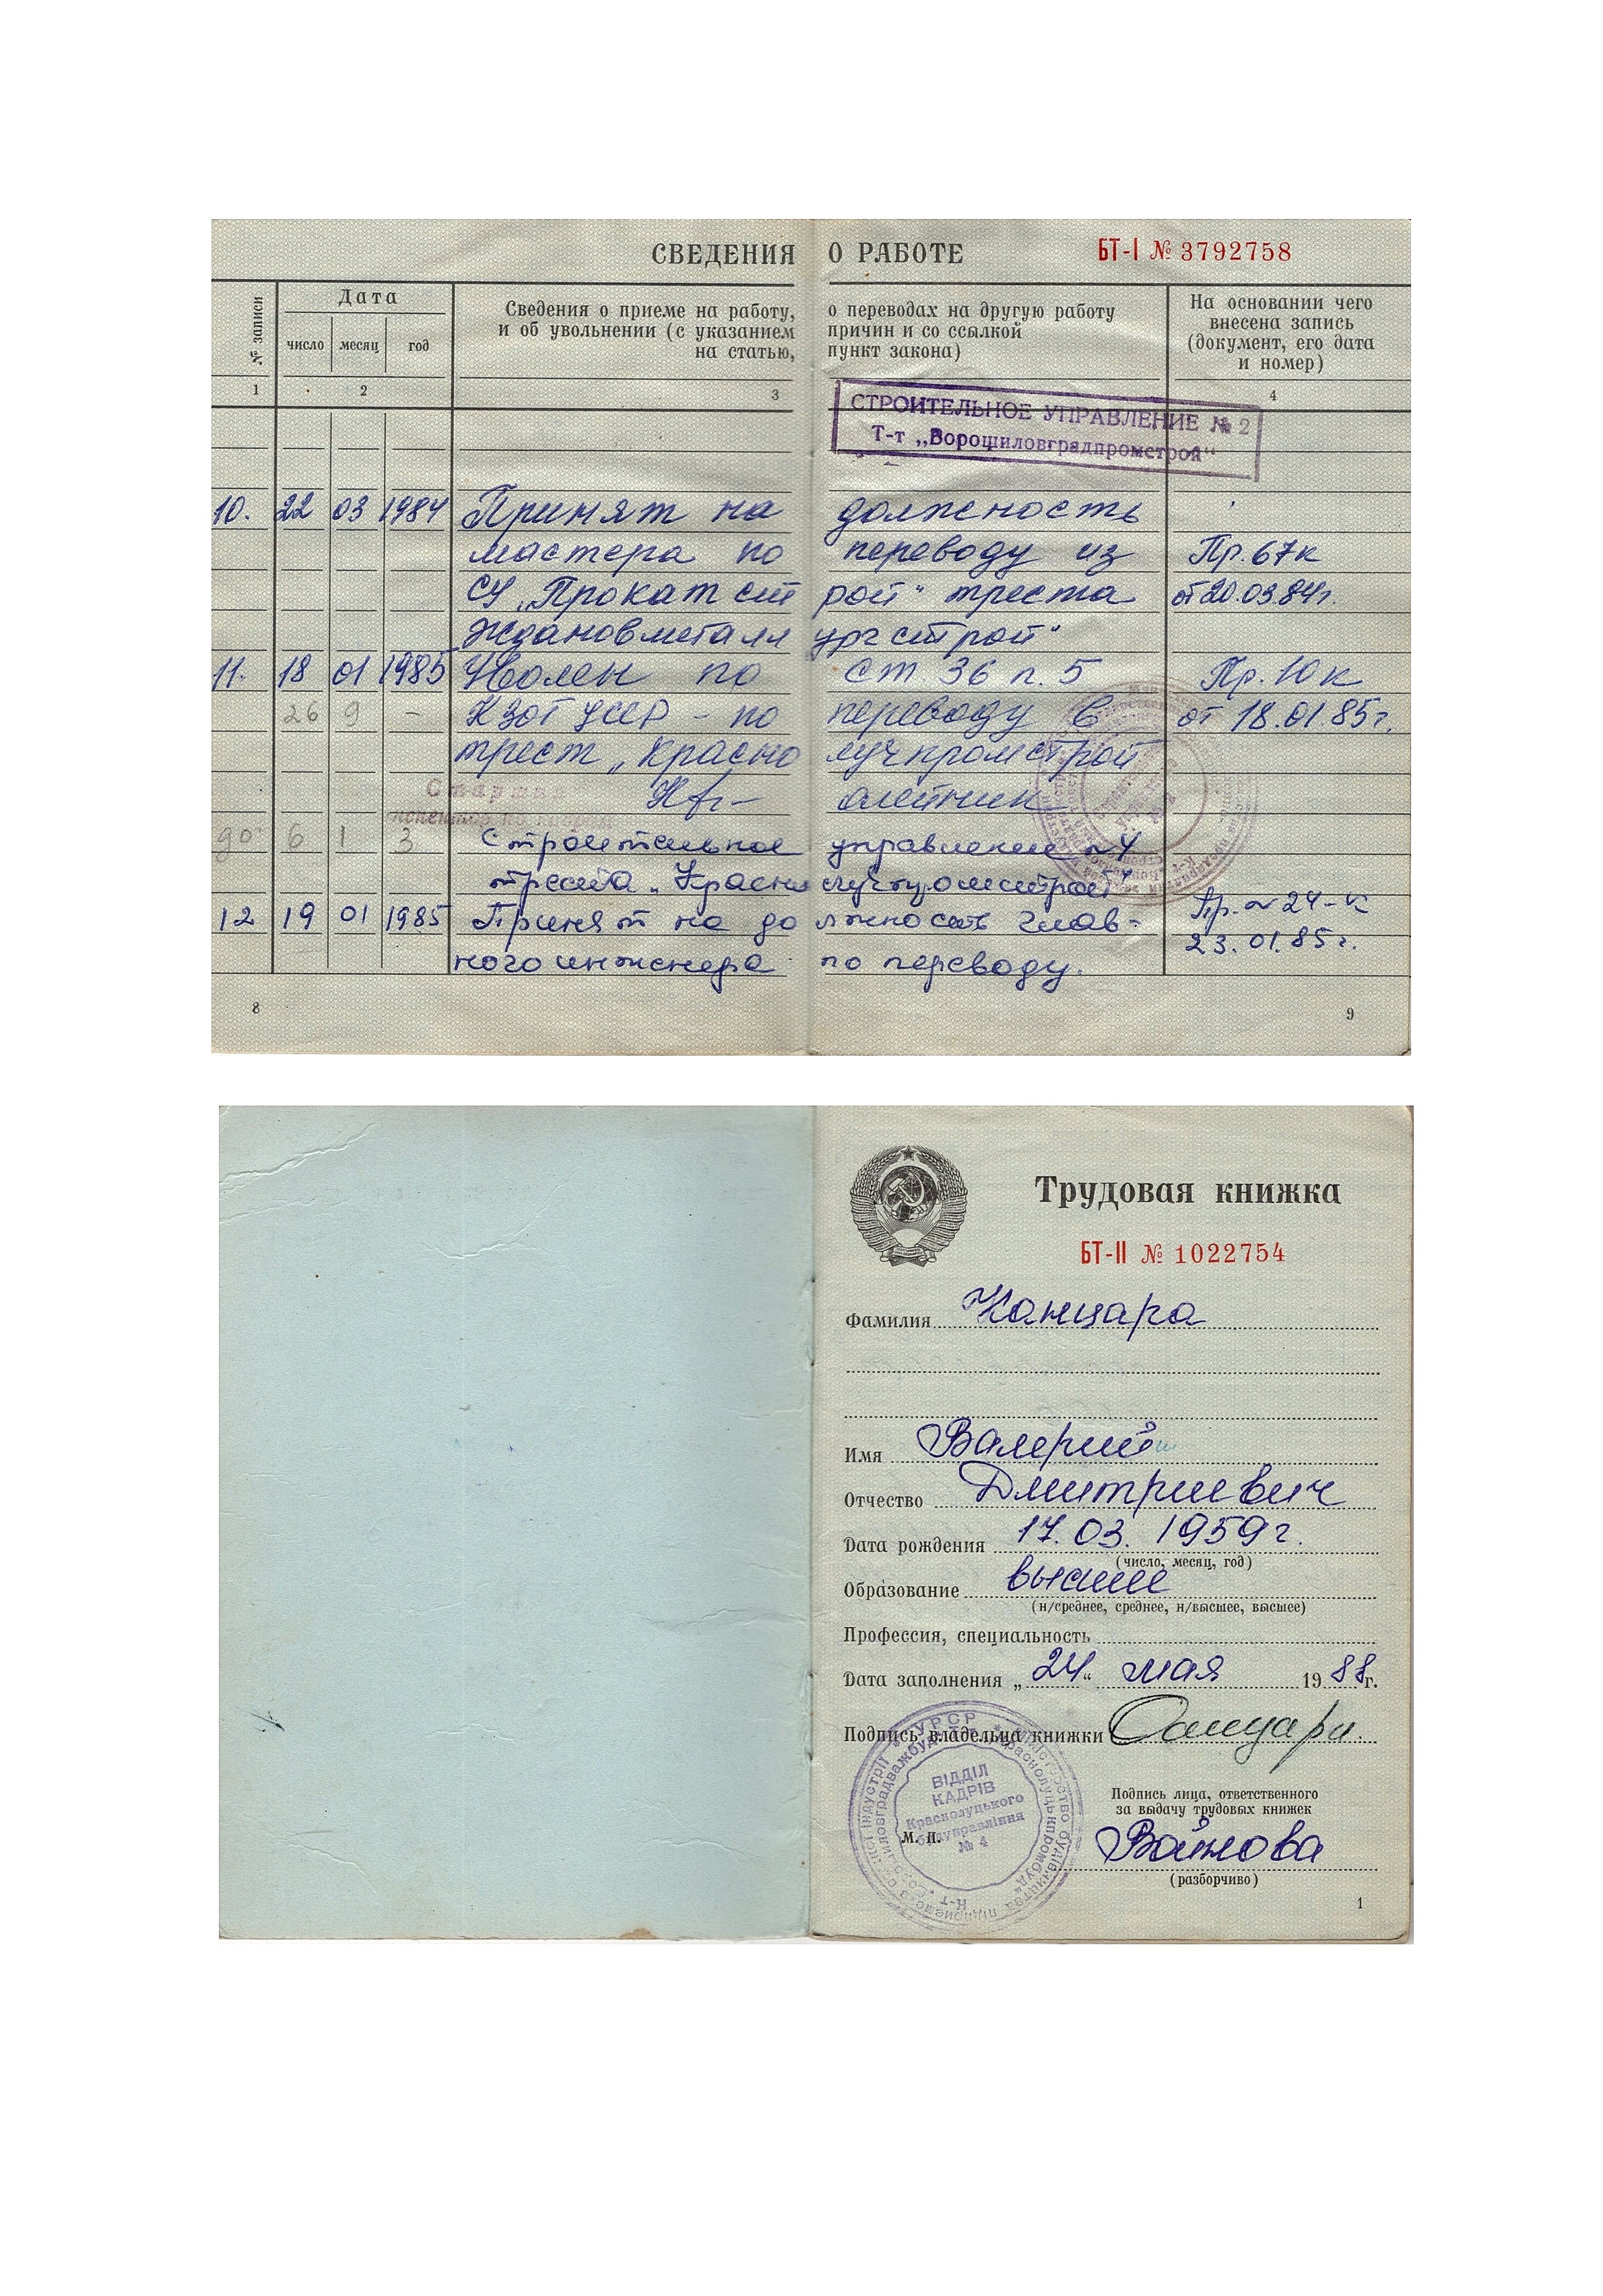 СВЕДЕНИЯ О РАБОТЕ БТ-I № 3792758
№ записи
Дата
число месяц год
Сведения о приеме на работу, о переводах на другую работу
и об увольнении (с указанием причин и со ссылкой
на статью, пункт закона)
На основании чего
внесена запись
(документ, его дата
и номер)
1 2 3 4
СТРОИТЕЛЬНОЕ УПРАВЛЕНИЕ № 2
Т-т „Ворошиловградпромстрой"
10. 22 03 1984 Принят на должность
мастера по переводу из Пр. 67к
СУ „Прокатстрой" треста от 20.03.84г.
Ждановметаллургстрой"
11. 18 01 1985 Уволен по ст. 36 п. 5 Пр. 10к
26 9 – КЗОТ УССР – по переводу в от 18.01.85г.
трест „Краснолучпромстрой
Старший
инспектор по кадрам
Олейник
90 6 1 3 Строительное управление №4
треста „Краснолучпромстрой"
12 19 01 1985 Принят на должность глав- Пр. №24-к
ного инженера по переводу. 23.01.85г.
8 9
Трудовая книжка
БТ-II № 1022754
Фамилия Канцара
Имя Валерий
Отчество Дмитриевич
Дата рождения 17.03.1959г.
(число, месяц, год)
Образование высшее
(н/среднее, среднее, н/высшее, высшее)
Профессия, специальность
Дата заполнения „24" мая 1988г.
Подпись владельца книжки
УРСР
ВІДДІЛ
КАДРІВ
Краснолуцького
будуправління
№ 4
М. П.
Подпись лица, ответственного
за выдачу трудовых книжек
Войнова
(разборчиво)
1